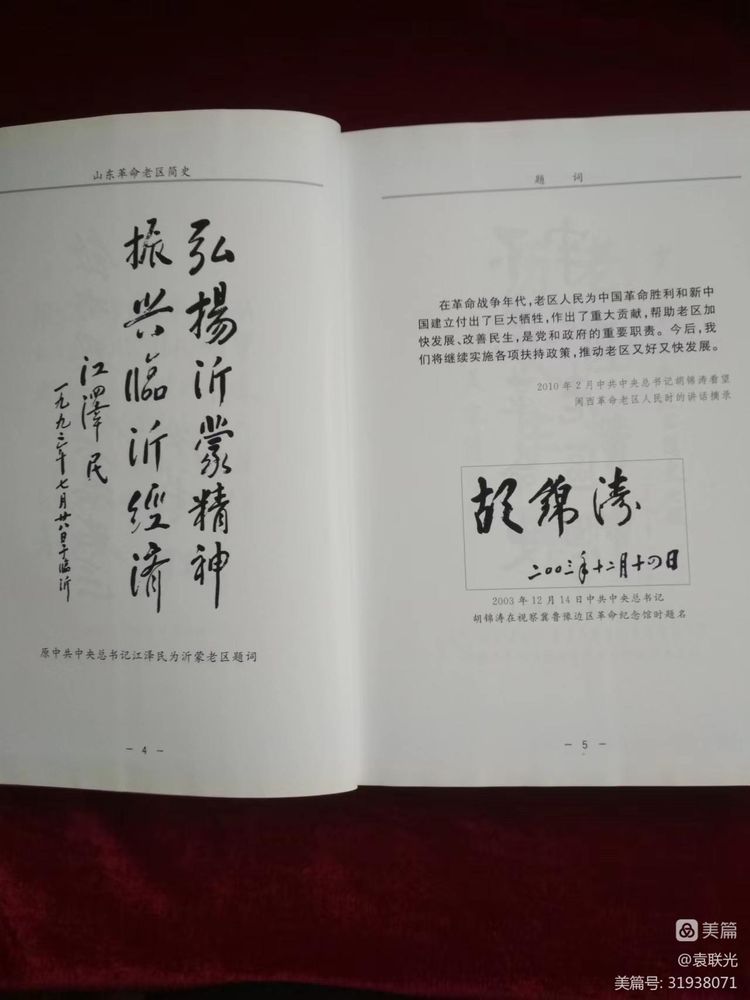 山东革命老区简史
弘揚沂蒙精神
振兴臨沂經济
江泽民
一九九二年七月廿八日于临沂
原中共中央总书记江泽民为沂蒙老区题词
－4－
题 词
在革命战争年代，老区人民为中国革命胜利和新中
国建立付出了巨大牺牲，作出了重大贡献，帮助老区加
快发展、改善民生，是党和政府的重要职责。今后，我
们将继续实施各项扶持政策，推动老区又好又快发展。
2010年2月中共中央总书记胡锦涛看望
闽西革命老区人民时的讲话摘录
胡錦濤
二00三年十二月十四日
2003年12月14日中共中央总书记
胡锦涛在视察冀鲁豫边区革命纪念馆时题名
－5－
美篇
@袁联光
美篇号: 31938071